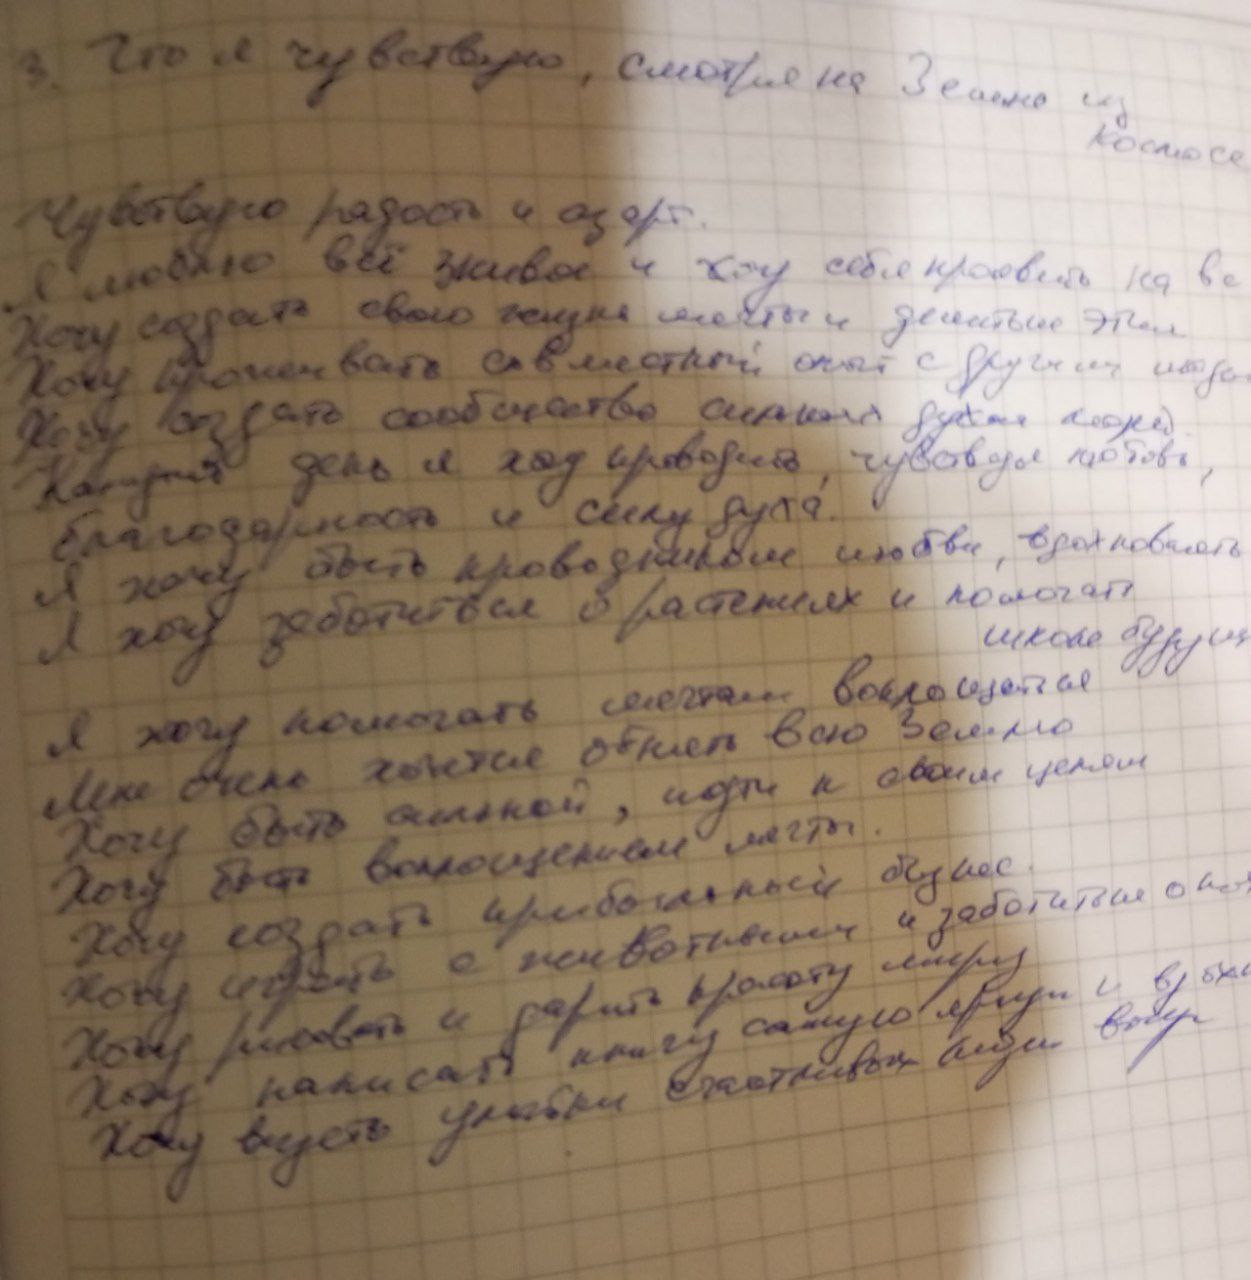 3. Что я чувствую, смотря на Землю из
космоса
Чувствую радость и азарт.
Я люблю всё живое и хочу себя проявить на
Хочу создать свою жизнь мечты и делиться этим
Хочу проживать совместный опыт с другими
Хочу создать сообщество сильных духом людей.
Каждый день я хочу проводить, чувствуя любовь,
благодарность и силу духа.
Я хочу быть проводником любви, вдохновлять
Я хочу заботиться о растениях и помогать
школе
Я хочу помогать мечтам воплощаться
Мне очень хочется обнять всю Землю
Хочу быть сильной, идти к своим целям
Хочу быть воплощением мечты.
Хочу создать прибыльный бизнес.
Хочу играть с животными и заботиться о
Хочу рисовать и дарить красоту миру
Хочу написать книгу самую яркую и
Хочу видеть улыбки счастливых людей